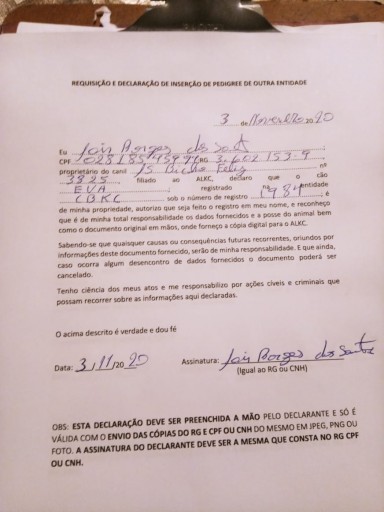 REQUISIÇÃO E DECLARAÇÃO DE INSERÇÃO DE PEDIGREE DE OUTRA ENTIDADE
3 de Novembro 2020
Eu Jois Borges dos Sant
CPF RG 3.602153-9
proprietário do canil JS Bicho Feliz nº
3825 filiado ao ALKC, declaro que o cão
EVA registrado na entidade
CBKC sob o número de registro é
de minha propriedade, autorizo que seja feito o registro em meu nome, e reconheço
que é de minha total responsabilidade os dados fornecidos e a posse do animal bem
como o documento original em mãos, onde forneço a cópia digital para o ALKC.
Sabendo-se que quaisquer causas ou consequências futuras recorrentes, oriundos por
informações deste documento fornecido, serão de minha responsabilidade. E que ainda,
caso ocorra algum desencontro de dados fornecidos o documento poderá ser
cancelado.
Tenho ciência dos meus atos e me responsabilizo por ações cíveis e criminais que
possam recorrer sobre as informações aqui declaradas.
O acima descrito é verdade e dou fé
Data: 3/11/2020 Assinatura: Jois Borges dos Santos
(Igual ao RG ou CNH)
OBS: ESTA DECLARAÇÃO DEVE SER PREENCHIDA A MÃO PELO DECLARANTE E SÓ É
VÁLIDA COM O ENVIO DAS CÓPIAS DO RG E CPF OU CNH DO MESMO EM JPEG, PNG OU
FOTO. A ASSINATURA DO DECLARANTE DEVE SER A MESMA QUE CONSTA NO RG CPF
OU CNH.